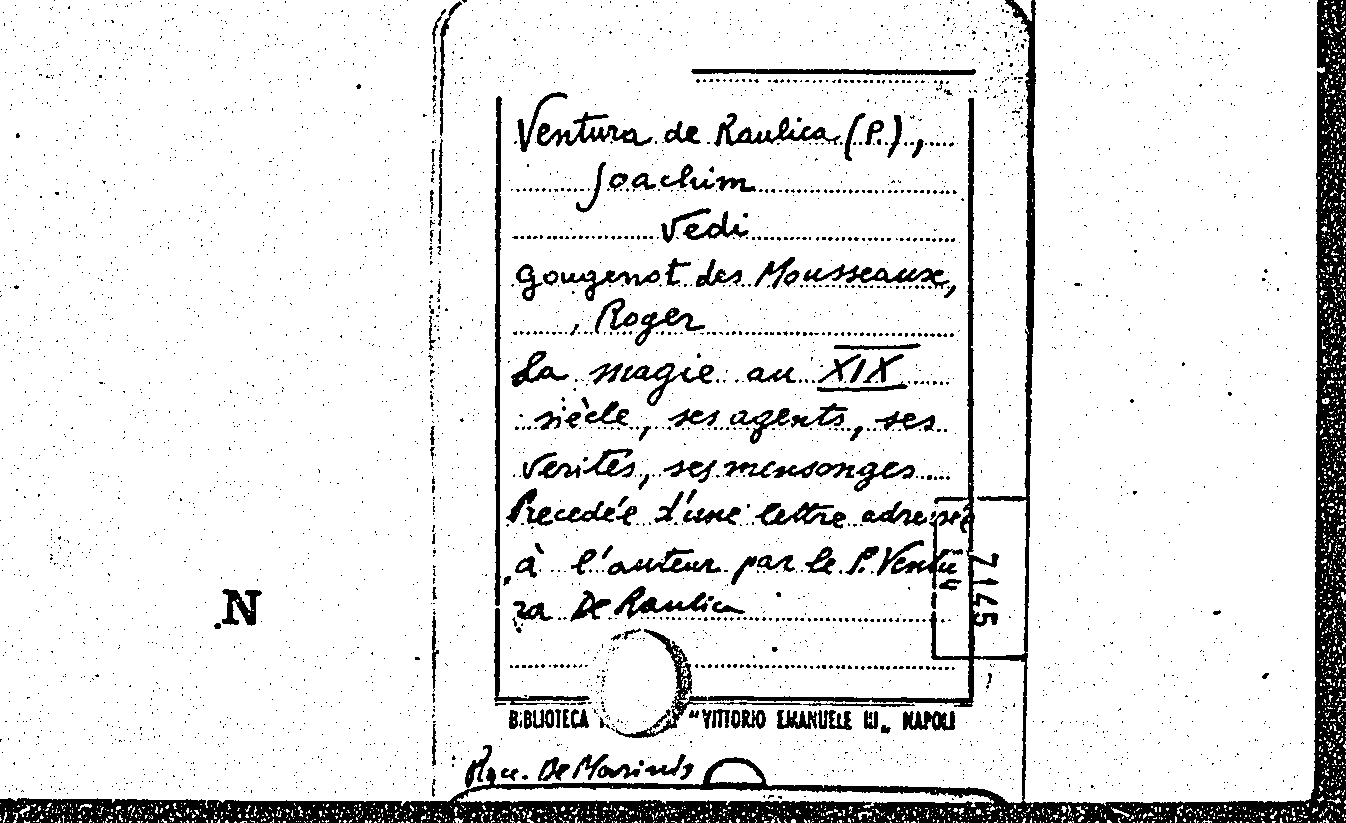 Ventura de Raulica (P.),
Joachim
Vedi
Gougenot des Mousseaux,
Roger
La magie au XIX
siècle, ses agents, ses
verités, ses mensonges....
Precedée d'une lettre adressée
à l'auteur par le P. Ventu=
ra De Raulica
7145
N
BIBLIOTECA "VITTORIO EMANUELE III„ NAPOLI
De Marinis